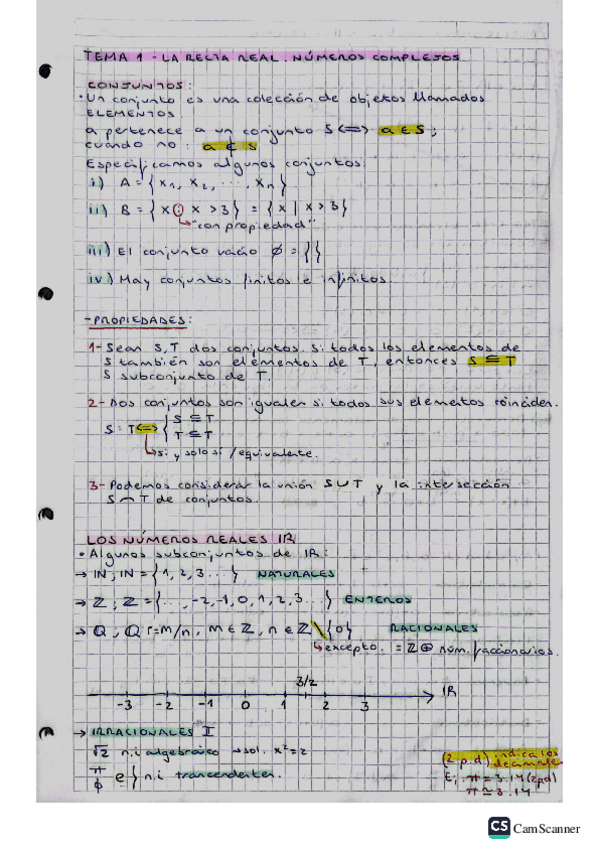 TEMA 1 - LA RECTA REAL. NÚMEROS COMPLEJOS
CONJUNTOS:
• Un conjunto es una colección de objetos llamados
ELEMENTOS.
a pertenece a un conjunto S <=> a ∈ S;
cuando no: a ∉ S
Especificamos algunos conjuntos:
i) A = { x1, x2, ..., xn }
ii) B = { x : x > 3 } = { x | x > 3 }
↳ "con propiedad"
iii) El conjunto vacío Ø = { }
iv) Hay conjuntos finitos e infinitos.
- PROPIEDADES:
1- Sean S, T dos conjuntos. Si todos los elementos de
S también son elementos de T, entonces S ⊆ T
S subconjunto de T.
2- Dos conjuntos son iguales si todos sus elementos coinciden.
S = T <=> { S ⊆ T
T ⊆ T
↳ si y solo si / equivalente.
3- Podemos considerar la unión S ∪ T y la intersección
S ∩ T de conjuntos.
LOS NÚMEROS REALES IR
• Algunos subconjuntos de IR:
→ IN; IN = { 1, 2, 3... } NATURALES
→ ℤ; ℤ = { ..., -2, -1, 0, 1, 2, 3... } ENTEROS
→ ℚ; ℚ r=m/n, m ∈ ℤ, n ∈ ℤ \ {0} RACIONALES
↳ excepto. = ℤ ⊕ núm. fraccionarios.
3/2
IR
-3 -2 -1 0 1 2 3
→ IRRACIONALES II
√2 n.i algebraico → sol. x² = 2
π e } n.i trancendentes.
ϕ
(2 p.d) indica los
decimales.
Ej. π = 3.14 (2pd)
π ≃ 3.14
CS CamScanner